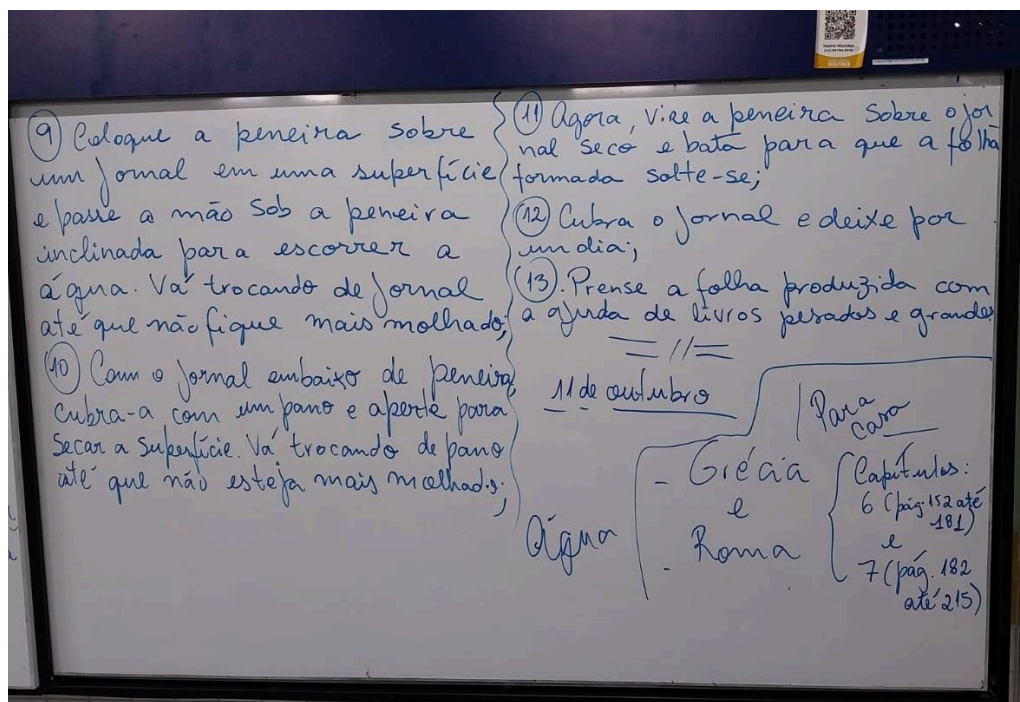 9 Coloque a peneira sobre
um jornal em uma superfície
e passe a mão sob a peneira
inclinada para escorrer a
água. Vá trocando de jornal
até que não fique mais molhado;
10 Com o jornal embaixo de peneira,
cubra-a com um pano e aperte para
secar a superfície. Vá trocando de pano
até que não esteja mais molhado;
11 Agora, vire a peneira sobre o jor
nal seco e bata para que a folha
formada solte-se;
12 Cubra o jornal e deixe por
um dia;
13. Prense a folha produzida com
a ajuda de livros pesados e grandes.
11 de outubro
Para
casa
Água
- Grécia
e
- Roma
Capítulos:
6 (pág. 152 até
181)
e
7 (pág. 182
até 215)